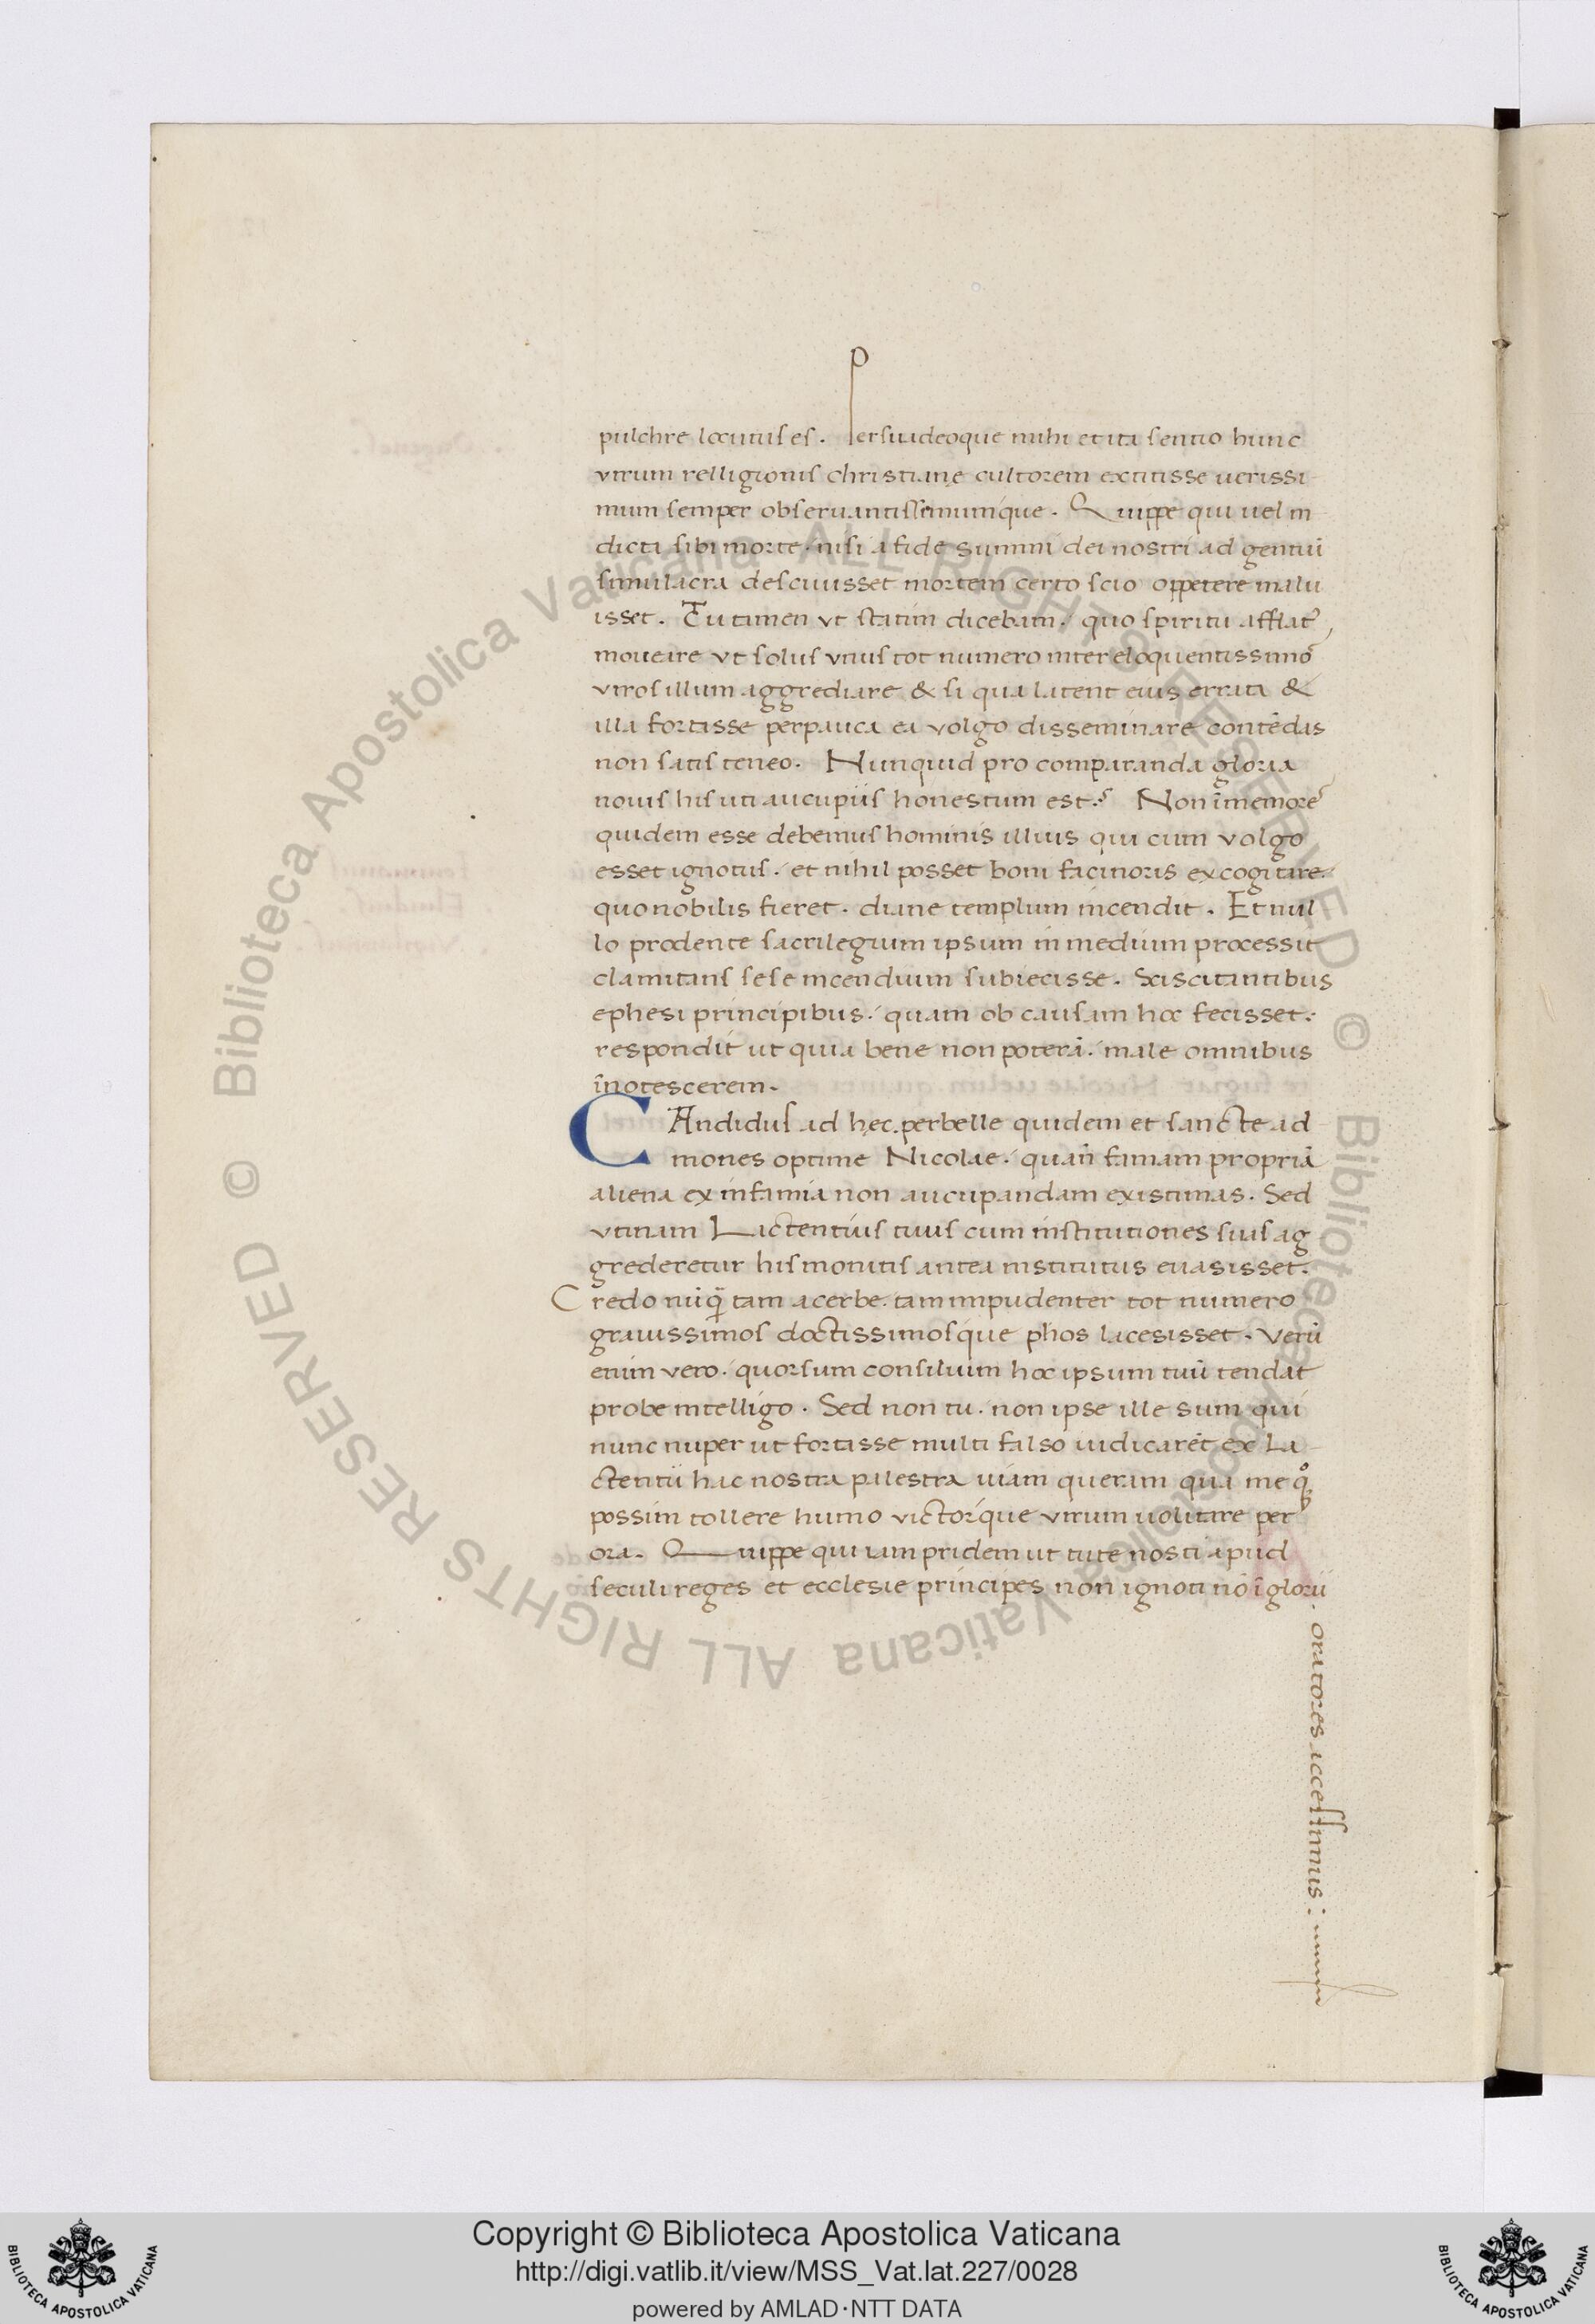 pulchre locutus es. Persuadeoque mihi et ita sentio hunc
virum relligionis christianę cultorem extitisse uerissi-
mum semper obseruantissimumque. Quippe qui uel in
dicta sibi morte nisi a fide summi dei nostri ad gentiū
simulacra desciuisset mortem certo scio oppetere malu
isset. Tu tamen vt statim dicebam quo spiritu afflat9
moueare vt solus vnus tot numero inter eloquentissimos
viros illum aggrediare & si qua latent eius errata &
illa fortasse perpauca ea volgo disseminare contēdas
non satis teneo. Nunquid pro comparanda gloria
nouis his uti aucupiis honestum est? Non īmemores
quidem esse debemus hominis illius qui cum volgo
esset ignotus. et nihil posset boni facinoris excogitare
quo nobilis fieret. diane templum incendit. Et nul
lo prodente sacrilegium ipsum in medium processit
clamitans sese incendium subiecisse. Sciscitantibus
ephesi principibus. quam ob causam hoc fecisset:
respondit ut quia bene non poterā. male omnibus
īnotescerem.
CAndidus ad hęc. perbelle quidem et sancte ad
mones optime Nicolae. quan̄ famam propriā
aliena ex infamia non aucupandam existimas. Sed
vtinam Lactentius tuus cum institutiones suas ag
grederetur his monitis antea institutus euasisset.
Credo nūq̄ tam acerbe. tam impudenter tot numero
grauissimos doctissimosque phos lacesisset. Verū
enim vero. quorsum consilium hoc ipsum tuū tendat
probe intelligo. Sed non tu. non ipse ille sum qui
nunc nuper ut fortasse multi falso iudicarēt ex La-
ctentii hac nostra palestra uiam queram qua me q̊
possim tollere humo victorque virum uolitare per
ora. Quippe qui iam pridem ut tute nosti apud
seculi reges et ecclesie principes non ignoti nō īglorii
oratores accessimus:
Copyright © Biblioteca Apostolica Vaticana
http://digi.vatlib.it/view/MSS_Vat.lat.227/0028
powered by AMLAD·NTT DATA
BIBLIOTECA APOSTOLICA VATICANA
BIBLIOTECA APOSTOLICA VATICANA
© Biblioteca Apostolica Vaticana ALL RIGHTS RESERVED
© Biblioteca Apostolica Vaticana ALL RIGHTS RESERVED